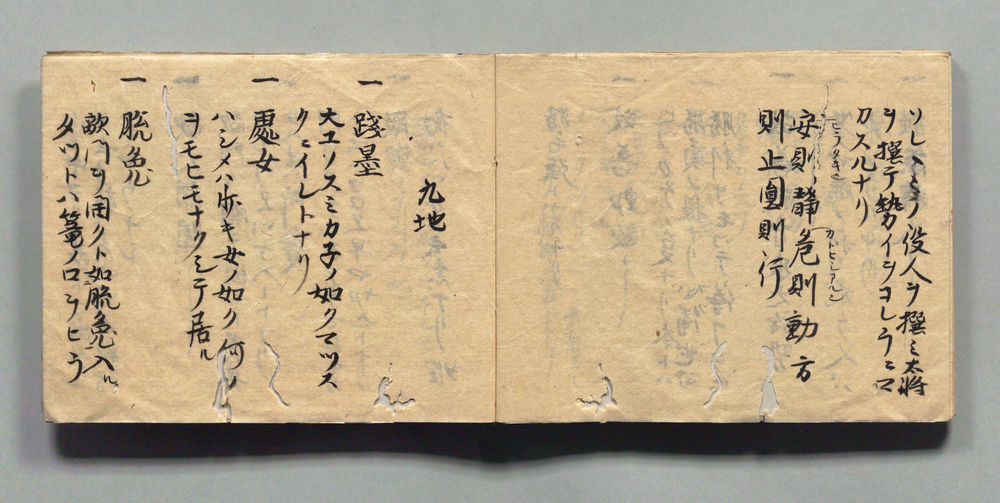 ソレ〱ミノ役人ヲ撰ミ太将
ヲ撰テ勢イヲコレラニマ
カスルナリ
一 安則静危則動方
ヒラタキ
カドヒシアルニ
則止圓則行
九地
一 踐墨
大工ノスミカ子ノ如クマツス
クニイレトナリ
一 處女
ハシメハ歩キ女ノ如ク何ノ
ヲモヒモナクシテ居ル
一 脱兔
敵門ヲ開クト如脱兔入ル
タツトハ篭ノ口ヲヒラ